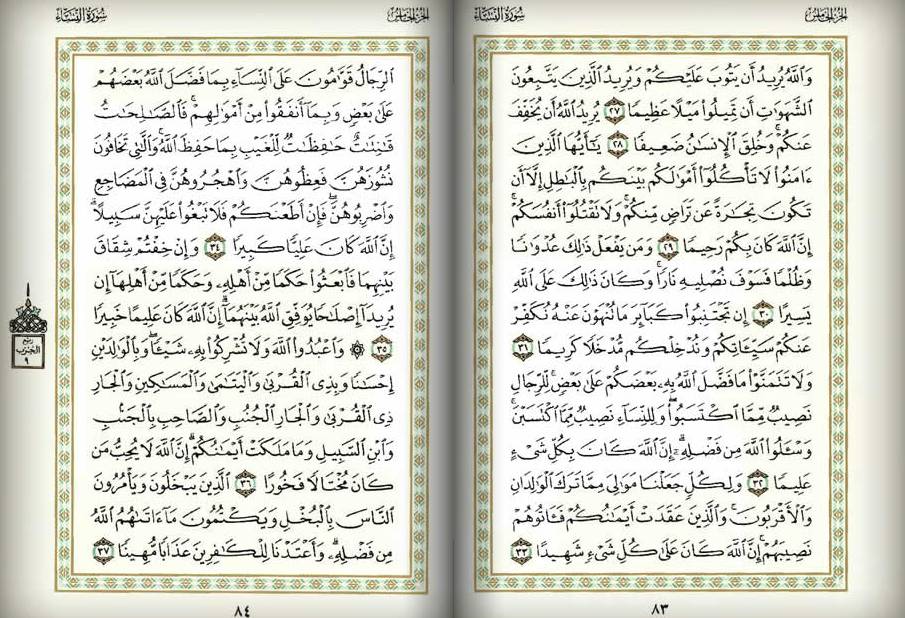 الجزء الخامس
سورة النساء
وَٱللَّهُ يُرِيدُ أَن يَتُوبَ عَلَيْكُمْ وَيُرِيدُ ٱلَّذِينَ يَتَّبِعُونَ
ٱلشَّهَوَٰتِ أَن تَمِيلُوا۟ مَيْلًا عَظِيمًا ٢٧ يُرِيدُ ٱللَّهُ أَن يُخَفِّفَ
عَنكُمْ ۚ وَخُلِقَ ٱلْإِنسَٰنُ ضَعِيفًا ٢٨ يَٰٓأَيُّهَا ٱلَّذِينَ
ءَامَنُوا۟ لَا تَأْكُلُوٓا۟ أَمْوَٰلَكُم بَيْنَكُم بِٱلْبَٰطِلِ إِلَّآ أَن
تَكُونَ تِجَٰرَةً عَن تَرَاضٍ مِّنكُمْ ۚ وَلَا تَقْتُلُوٓا۟ أَنفُسَكُمْ ۚ
إِنَّ ٱللَّهَ كَانَ بِكُمْ رَحِيمًا ٢٩ وَمَن يَفْعَلْ ذَٰلِكَ عُدْوَٰنًا
وَظُلْمًا فَسَوْفَ نُصْلِيهِ نَارًا ۚ وَكَانَ ذَٰلِكَ عَلَى ٱللَّهِ
يَسِيرًا ٣٠ إِن تَجْتَنِبُوا۟ كَبَآئِرَ مَا تُنْهَوْنَ عَنْهُ نُكَفِّرْ
عَنكُمْ سَيِّـَٔاتِكُمْ وَنُدْخِلْكُم مُّدْخَلًا كَرِيمًا ٣١
وَلَا تَتَمَنَّوْا۟ مَا فَضَّلَ ٱللَّهُ بِهِۦ بَعْضَكُمْ عَلَىٰ بَعْضٍ ۚ لِّلرِّجَالِ
نَصِيبٌ مِّمَّا ٱكْتَسَبُوا۟ ۖ وَلِلنِّسَآءِ نَصِيبٌ مِّمَّا ٱكْتَسَبْنَ ۚ
وَسْـَٔلُوا۟ ٱللَّهَ مِن فَضْلِهِۦٓ ۗ إِنَّ ٱللَّهَ كَانَ بِكُلِّ شَىْءٍ
عَلِيمًا ٣٢ وَلِكُلٍّ جَعَلْنَا مَوَٰلِىَ مِمَّا تَرَكَ ٱلْوَٰلِدَانِ
وَٱلْأَقْرَبُونَ ۚ وَٱلَّذِينَ عَقَدَتْ أَيْمَٰنُكُمْ فَـَٔاتُوهُمْ
نَصِيبَهُمْ ۚ إِنَّ ٱللَّهَ كَانَ عَلَىٰ كُلِّ شَىْءٍ شَهِيدًا ٣٣
٨٣
الجزء الخامس
سورة النساء
ٱلرِّجَالُ قَوَّٰمُونَ عَلَى ٱلنِّسَآءِ بِمَا فَضَّلَ ٱللَّهُ بَعْضَهُمْ
عَلَىٰ بَعْضٍ وَبِمَآ أَنفَقُوا۟ مِنْ أَمْوَٰلِهِمْ ۚ فَٱلصَّٰلِحَٰتُ
قَٰنِتَٰتٌ حَٰفِظَٰتٌ لِّلْغَيْبِ بِمَا حَفِظَ ٱللَّهُ ۚ وَٱلَّٰتِى تَخَافُونَ
نُشُوزَهُنَّ فَعِظُوهُنَّ وَٱهْجُرُوهُنَّ فِى ٱلْمَضَاجِعِ
وَٱضْرِبُوهُنَّ ۖ فَإِنْ أَطَعْنَكُمْ فَلَا تَبْغُوا۟ عَلَيْهِنَّ سَبِيلًا ۗ
إِنَّ ٱللَّهَ كَانَ عَلِيًّا كَبِيرًا ٣٤ وَإِنْ خِفْتُمْ شِقَاقَ
بَيْنِهِمَا فَٱبْعَثُوا۟ حَكَمًا مِّنْ أَهْلِهِۦ وَحَكَمًا مِّنْ أَهْلِهَآ إِن
يُرِيدَآ إِصْلَٰحًا يُوَفِّقِ ٱللَّهُ بَيْنَهُمَآ ۗ إِنَّ ٱللَّهَ كَانَ عَلِيمًا خَبِيرًا
٣٥ ۞ وَٱعْبُدُوا۟ ٱللَّهَ وَلَا تُشْرِكُوا۟ بِهِۦ شَيْـًٔا ۖ وَبِٱلْوَٰلِدَيْنِ
إِحْسَٰنًا وَبِذِى ٱلْقُرْبَىٰ وَٱلْيَتَٰمَىٰ وَٱلْمَسَٰكِينِ وَٱلْجَارِ
ذِى ٱلْقُرْبَىٰ وَٱلْجَارِ ٱلْجُنُبِ وَٱلصَّاحِبِ بِٱلْجَنۢبِ
وَٱبْنِ ٱلسَّبِيلِ وَمَا مَلَكَتْ أَيْمَٰنُكُمْ ۗ إِنَّ ٱللَّهَ لَا يُحِبُّ مَن
كَانَ مُخْتَالًا فَخُورًا ٣٦ ٱلَّذِينَ يَبْخَلُونَ وَيَأْمُرُونَ
ٱلنَّاسَ بِٱلْبُخْلِ وَيَكْتُمُونَ مَآ ءَاتَىٰهُمُ ٱللَّهُ
مِن فَضْلِهِۦ ۗ وَأَعْتَدْنَا لِلْكَٰفِرِينَ عَذَابًا مُّهِينًا ٣٧
ربع
الحزب
٩
٨٤